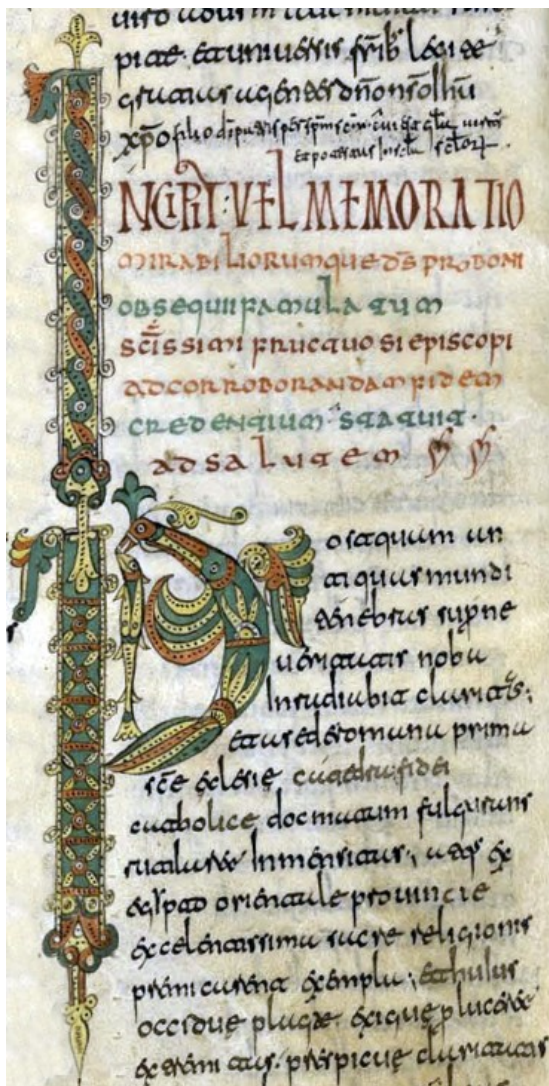 gratias agentes dno nso
xpo filio di patris per spm scm cui est uirtus
et potestas in scla sclor
NCIPIT: VEL MEMORATIO
mirabiliorum que ds pro boni
obsequii famulatum
scissimi fructuosi episcopi
ad corroborandam fidem
credentium statuit.
ad salutem
Postquam an
tiquas mundi
tenebras supne
ueritatis noba
Inradiabit claritas;
et a sede romana prima
sce eclesie catedra fidei
catholice docmatum fulgurans
rutilaret Inmensitas; ex
egipto orientale prouincie
excelentissima sacre religionis
premicarent exempla; et huius
occidue plage exigue
perspicue claritatis